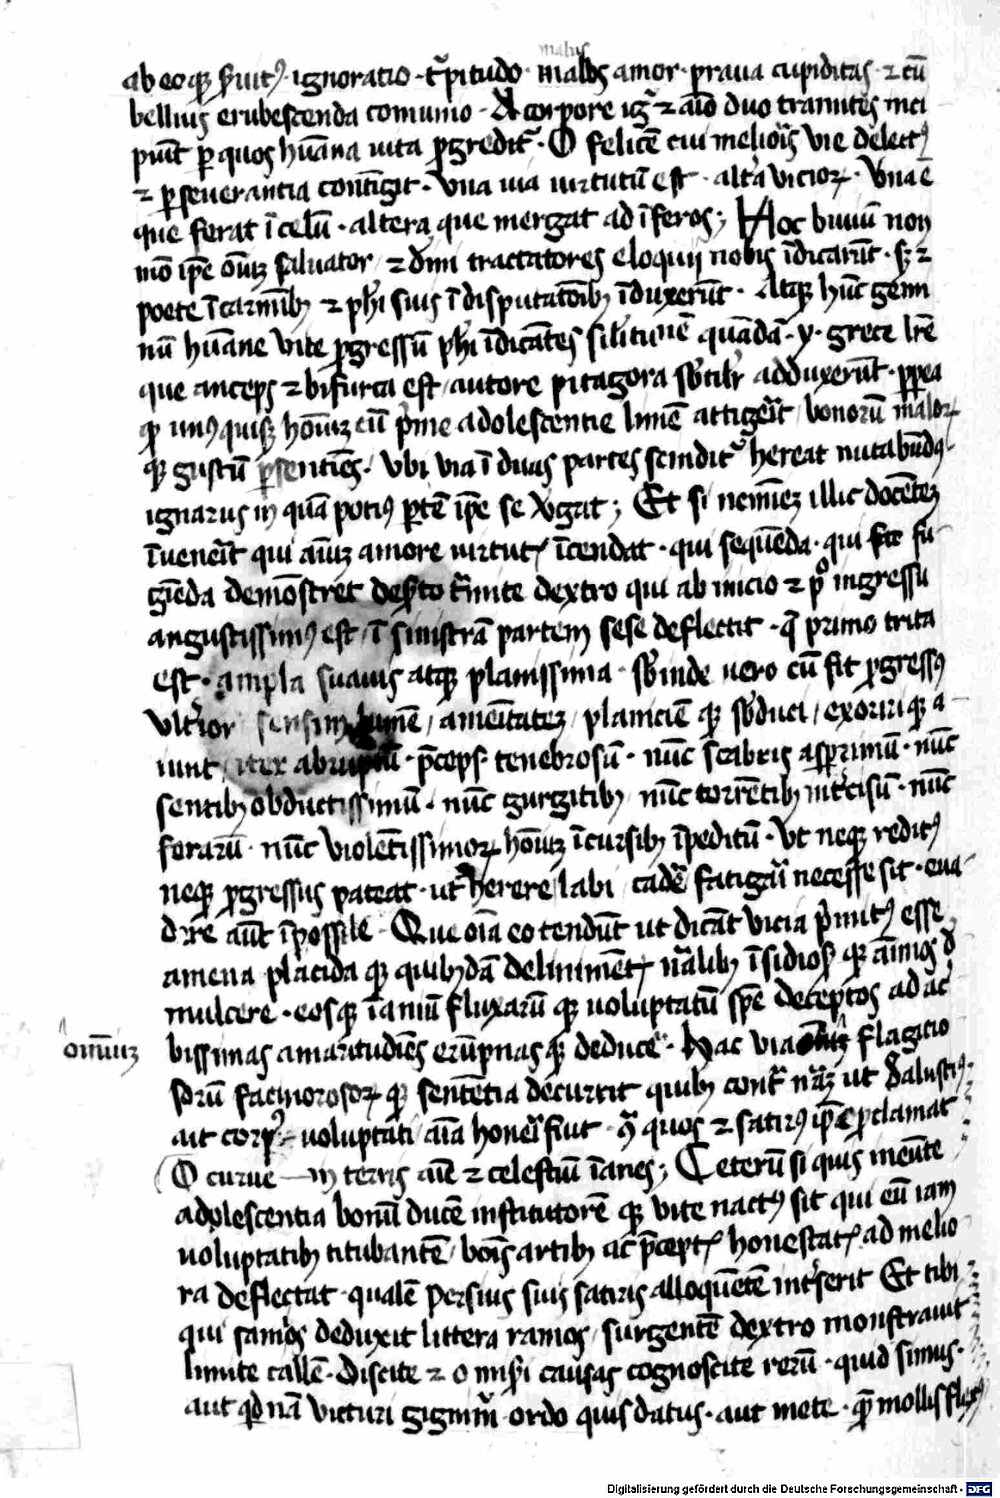 malus
ab eoque seruitus · ignoratio · turpitudo · malus amor · praua cupiditas · et cum
bellius erubescenda comunio · A corpore igitur et animo duo tramites inci
piunt per quos humana uita progreditur · O felicem cui melioris vie delectus
et perseuerantia contingit · Vna uia uirtutum est · altera viciorum · Vna est
que ferat in celum · altera que mergat ad inferos ; Hoc biuium non
modo ipse omnium saluator / et diuini tractatores eloquij nobis indicarunt · sed et
poete in carminibus et philosophi suis in disputationibus induxerunt · Atque hunc gemi
num humane vite progressum philosophi indicantes similitudinem quandam · y · grece littere
que anceps et bifurca est / autore pitagora subtiliter adduxerunt · propterea
quod unusquisque hominum cum prime adolescentie limen attigerit / bonorum malorum
que gustum persentiens · vbi via in duas partes scinditur hereat nutabundus
ignarus in quam potius partem ipse se vergat ; Et si neminem illic docentem
inuenerit qui animum amore uirtutis incendat · qui sequenda · qui fu
gienda demonstret deserto tramite dextro qui ab inicio et primo ingressu
angustissimus est / in sinistram partem sese deflectit · que primo trita
est · ampla suauis atque planissima · subinde uero cum fit progressus
vlterior sensim lumen / amenitatem / planiciem que subduci / exoririque a
iunt / iter abruptum · preceps · tenebrosum · nunc scabris asperrimum · nunc
sentibus obductissimum · nunc gurgitibus / nunc torrentibus intercisum · nunc
ferarum · nunc violentissimorum hominum incursibus inpeditum · Vt neque reditus
neque progressus pateat · ut herere labi cadem fatigari necesse sit · eua
dere autem inpossibile · Que omnia eo tendunt ut dicant vicia primitus esse
amena placida que quibusdam delinimentis naturalibus insidiose que animos de
mulcere · eosque inanium fluxarum que uoluptatum spe deceptos ad acer
omnium
bissimas amaritudines erumpnas que deducere · Hac via flagitio
sorum facinorosorum que sententia decurrit quibus contra naturam ut Salustius
ait corpus uoluptati anima honeri fuit · quos et satirus ipse proclamat
O curue in terris anime et celestium inanes ; Ceterum si quis ineunte
adolescentia bonum ducem institutorem que vite nactus sit qui eum iam
uoluptatibus titubantem / bonis artibus ac preceptis honestatis ad melio
ra deflectat · qualem Persius suis satiris alloquentem inserit Et tibi
qui samios deduxit littera ramos / surgentem dextro monstrauit
limite callem · Discite et o miseri causas cognoscite rerum · quid simus ·
aut quidnam victuri gignimur · ordo quis datus · aut mete · quam mollis flexus
Digitalisierung gefördert durch die Deutsche Forschungsgemeinschaft - DFG